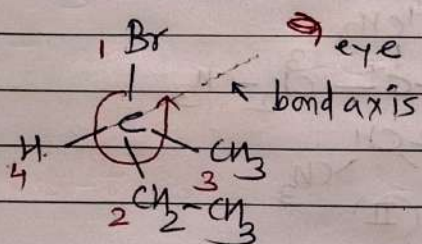 1 Br eye
bond axis
H C CH3
4 3
2 CH2-CH3